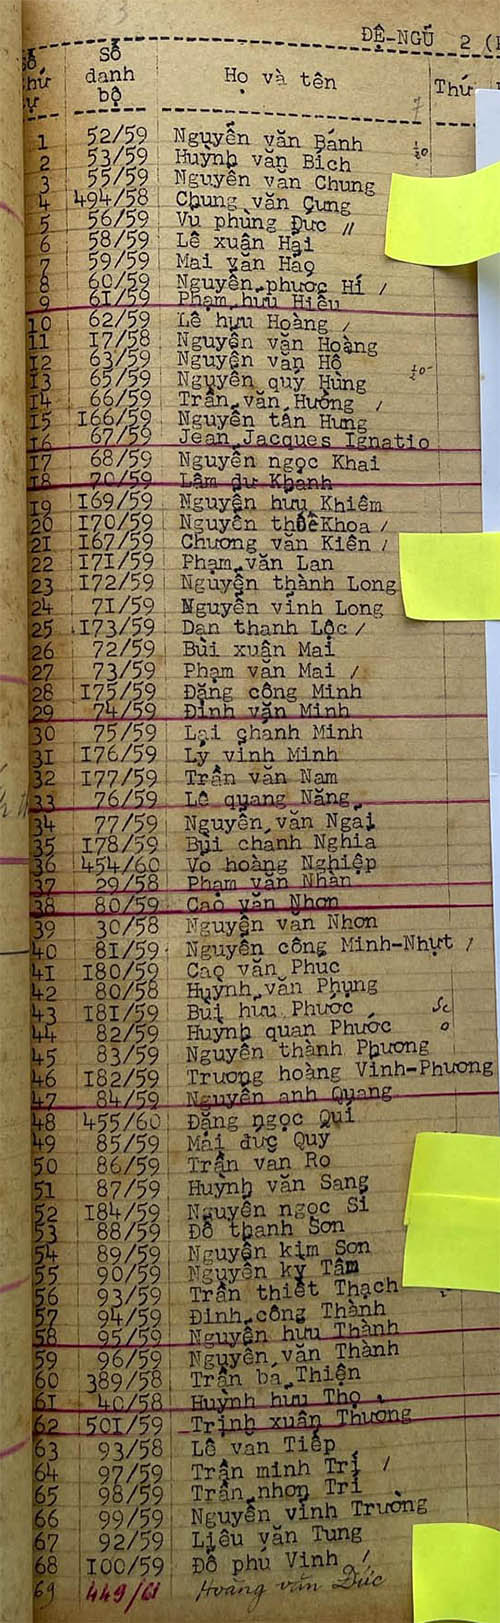 ĐỆ-NGŨ 2
Số thứ tự Số danh bộ Họ và tên Thứ
1 52/59 Nguyễn văn Bánh
2 53/59 Huỳnh văn Bích
3 55/59 Nguyễn văn Chung
4 494/58 Chung văn Cưng
5 56/59 Vũ phùng Đức //
6 58/59 Lê xuân Hại
7 59/59 Mai văn Hảo
8 60/59 Nguyễn phước Hí /
9 61/59 Phạm hữu Hiếu
10 62/59 Lê hữu Hoàng /
11 17/58 Nguyễn văn Hoàng
12 63/59 Nguyễn văn Hộ
13 65/59 Nguyễn quý Hùng
14 66/59 Trần văn Hưởng /
15 166/59 Nguyễn tấn Hưng
16 67/59 Jean Jacques Ignatio
17 68/59 Nguyễn ngọc Khai
18 70/59 Lâm dư Khánh
19 169/59 Nguyễn hữu Khiêm
20 170/59 Nguyễn thế Khoa /
21 167/59 Chương văn Kiên /
22 171/59 Phạm văn Lan
23 172/59 Nguyễn thành Long
24 71/59 Nguyễn vinh Long
25 173/59 Dan thanh Lộc /
26 72/59 Bùi xuân Mai
27 73/59 Phạm văn Mai /
28 175/59 Đặng công Minh
29 74/59 Đinh văn Minh
30 75/59 Lại chánh Minh
31 176/59 Lý vinh Minh
32 177/59 Trần văn Nam
33 76/59 Lê quang Năng
34 77/59 Nguyễn văn Ngại
35 178/59 Bùi chánh Nghĩa
36 454/60 Võ hoàng Nghiệp
37 29/58 Phạm văn Nhàn
38 80/59 Cao văn Nhơn
39 30/58 Nguyễn văn Nhơn
40 81/59 Nguyễn công Minh-Nhựt /
41 180/59 Cao văn Phúc
42 80/58 Huỳnh văn Phụng
43 181/59 Bùi hữu Phước
44 82/59 Huỳnh quan Phước
45 83/59 Nguyễn thành Phương
46 182/59 Trương hoàng Vinh-Phương
47 84/59 Nguyễn anh Quang
48 455/60 Đặng ngọc Quí
49 85/59 Mai đức Quý
50 86/59 Trần văn Ro
51 87/59 Huỳnh văn Sang
52 184/59 Nguyễn ngọc Sĩ
53 88/59 Đỗ thanh Sơn
54 89/59 Nguyễn kim Sơn
55 90/59 Nguyễn kỳ Tâm
56 93/59 Trần thiết Thạch
57 94/59 Đinh công Thành
58 95/59 Nguyễn hữu Thành
59 96/59 Nguyễn văn Thành
60 389/58 Trần bá Thiện
61 40/58 Huỳnh hữu Thọ
62 501/59 Trịnh xuân Thương
63 93/58 Lê văn Tiếp
64 97/59 Trần minh Trí /
65 98/59 Trần nhơn Trí
66 99/59 Nguyễn vinh Trường
67 92/59 Liêu văn Tùng
68 100/59 Đỗ phú Vinh /
69 449/61 Hoàng văn Đức